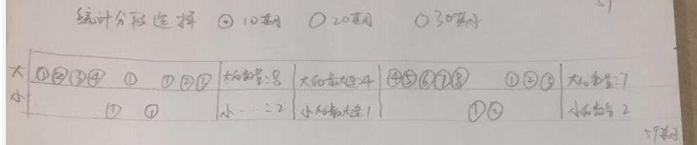 统计分段选择 ⊙10期 ○20期 ○30期
大 ①②③④ ① ①②③ 大的数量:8 大的最大连:4 ④⑤⑥⑦⑧ ①②③ 大的数量:7
小 ① ① 小……:2 小的最大连1 ①② 小的数量 2
59期